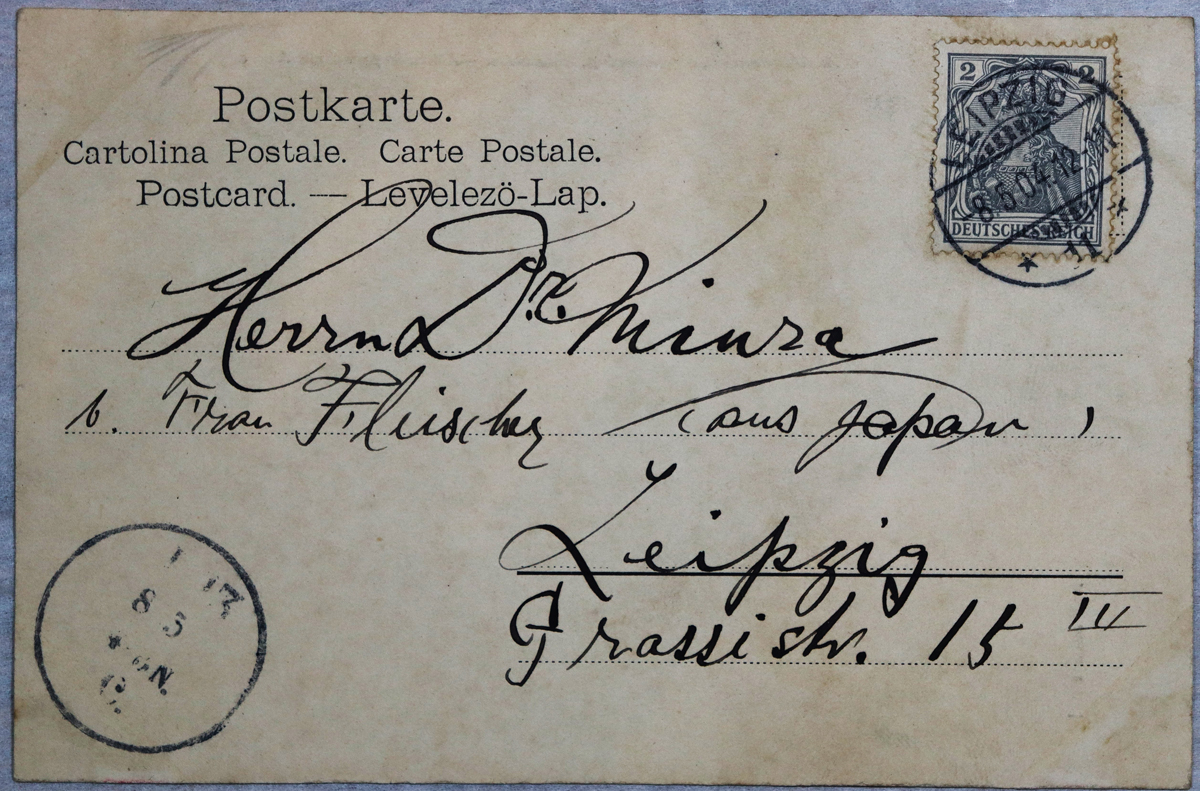 Postkarte.
Cartolina Postale. Carte Postale.
Postcard. — Levelezö-Lap.
2 2
LEIPZIG
-8.5.04.12
11
DEUTSCHES REICH
Herrn Dr. Miura
b. Frau Fleischer (aus Japan)
Leipzig
Grassistr. 15 III
8 5
N.